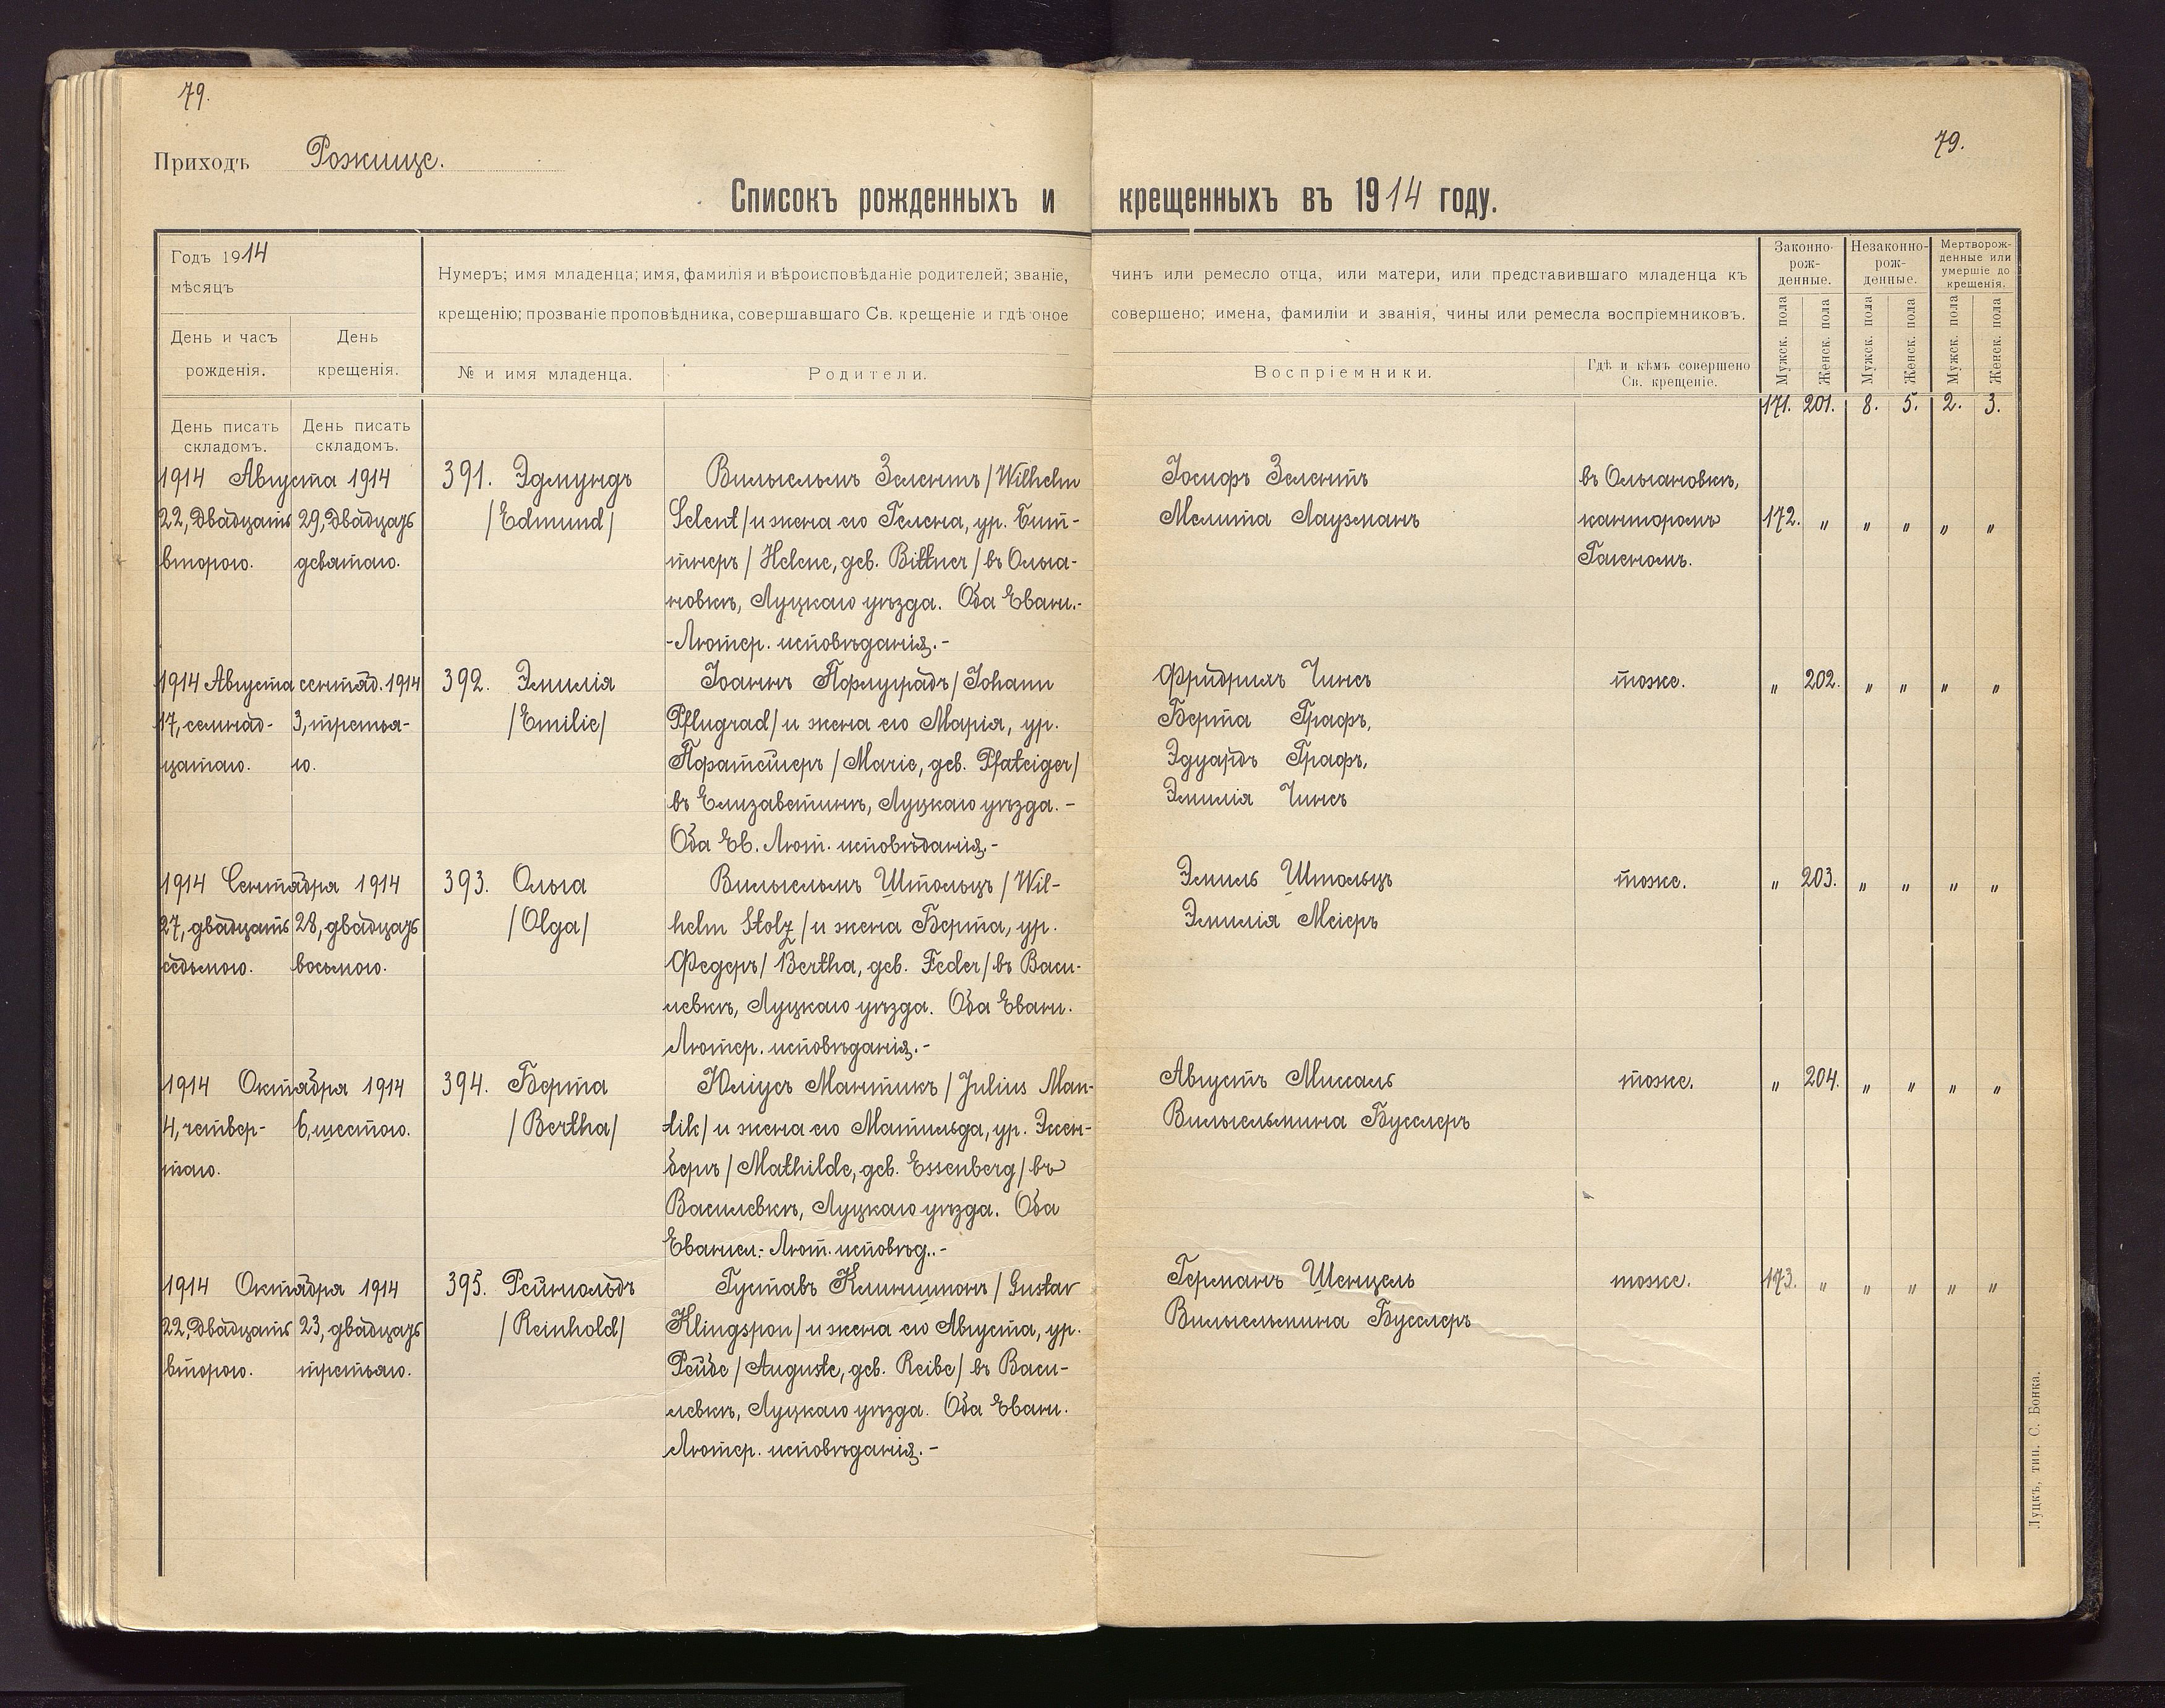 79.
79.
Приходъ Рожище.
Списокъ рожденныхъ и крещенныхъ въ 1914 году.
Годъ 1914
мѣсяцъ
День и часъ
рожденія.
День
крещенія.
Нумеръ; имя младенца; имя, фамилія и вѣроисповѣданіе родителей; званіе, чинъ или ремесло отца, или матери, или представившаго младенца къ
крещенію; прозваніе проповѣдника, совершавшаго Св. крещеніе и гдѣ оное совершено; имена, фамиліи и званія, чины или ремесла воспріемниковъ.
№ и имя младенца.
Родители.
Воспріемники.
Гдѣ и кѣмъ совершено
Св. крещеніе.
Законно-
рож-
денные.
Незаконно-
рож-
денные.
Мертворож-
денные или
умершіе до
крещенія.
Мужск. пола
Женск. пола
Мужск. пола
Женск. пола
Мужск. пола
Женск. пола
171. 201. 8. 5. 2. 3.
День писать
складомъ.
День писать
складомъ.
1914 Августа 1914
22, двадцать
второго.
29, двадцать
девятаго.
391. Эдмундъ
/Edmund/
Вильгельмъ Зелентъ /Wilhelm
Selent/ и жена его Гелена, ур. Бит-
тнеръ /Helene, geb. Bittner/ въ Ольга-
новкѣ, Луцкаго уѣзда. Оба Еванг.-
-Лютер. исповѣданія.-
Іосифъ Зелентъ
Мелита Лаузманъ
въ Ольгановкѣ,
канторомъ
Гагеномъ.
172. " " " " "
1914 Августа сентяб. 1914
17, семнад-
цатаго.
3, третья-
го.
392. Эмилія
/Emilie/
Іоаннъ Пфлуградъ /Johann
Pflugrad/ и жена его Марія, ур.
Пфатейгеръ /Marie, geb. Pfateiger/
въ Елизаветинѣ, Луцкаго уѣзда.-
Оба Ев. Лют. исповѣданія.-
Фридрихъ Чинсъ
Берта Графъ,
Эдуардъ Графъ,
Эмилія Чинсъ
тоже.
" 202. " " " "
1914 Сентября 1914
27, двадцать
седьмого.
28, двадцать
восьмого.
393. Ольга
/Olga/
Вильгельмъ Штольцъ /Wil-
helm Stolz/ и жена Берта, ур.
Федеръ /Bertha, geb. Feder/ въ Васи-
левкѣ, Луцкаго уѣзда. Оба Еванг.
Лютер. исповѣданія.-
Эмиль Штольцъ
Эмилія Меіеръ
тоже.
" 203. " " " "
1914 Октября 1914
4, четвер-
таго.
6, шестого.
394. Берта
/Bertha/
Юліусъ Мантикъ /Julius Man-
tik/ и жена его Матильда, ур. Эссен-
бергъ /Mathilde, geb. Essenberg/ въ
Василевкѣ, Луцкаго уѣзда. Оба
Евангел.-Лют. исповѣд..-
Августъ Миссаль
Вильгельмина Бусслеръ
тоже.
" 204. " " " "
1914 Октября 1914
22, двадцать
второго.
23, двадцать
третьяго.
395. Рейнгольдъ
/Reinhold/
Густавъ Клингшпонъ /Gustav
Klingspon/ и жена его Августа, ур.
Рейбе /Auguste, geb. Reibe/ въ Васи-
левкѣ, Луцкаго уѣзда. Оба Еванг.
Лютер. исповѣданія.-
Германъ Шенцель
Вильгельмина Бусслеръ
тоже.
173. " " " " "
Луцкъ, тип. С. Бонка.